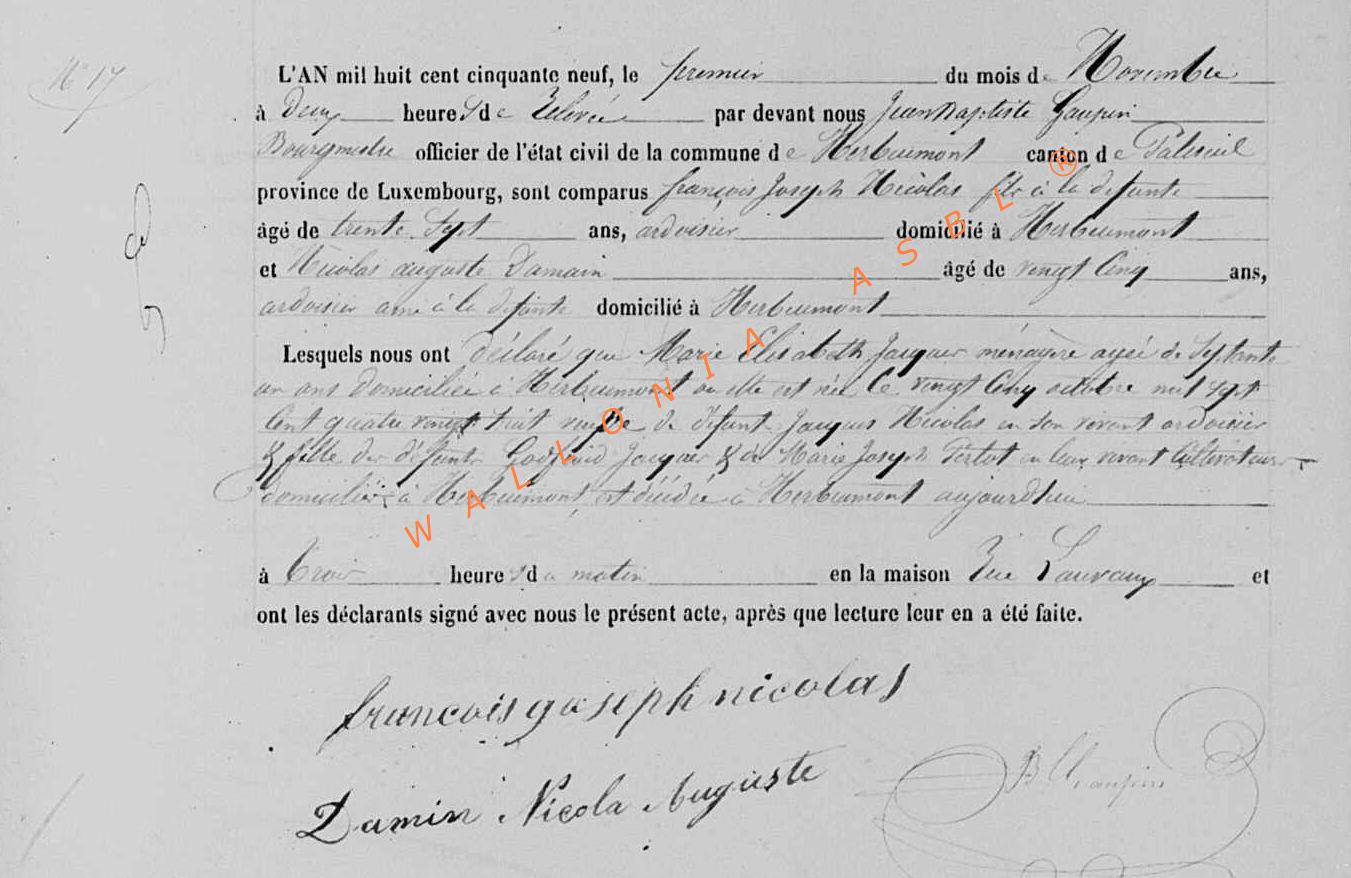 N° 17
L'AN mil huit cent cinquante neuf, le premier du mois de Novembre
à Deux heures de Relevée par devant nous Jean Baptiste Gaupin
Bourgmestre officier de l'état civil de la commune de Herbeumont canton de Paliseul
province de Luxembourg, sont comparus françois Joseph Nicolas fils à la defunte
âgé de trente Sept ans, ardoisier domicilié à Herbeumont
et Nicolas auguste Damain âgé de vingt Cinq ans,
ardoisier ami à la defunte domicilié à Herbeumont
Lesquels nous ont déclaré que Marie Elisabeth Jacques ménagère agée de Septante
un ans domiciliée à Herbeumont ou elle est née le vingt Cinq octobre mil sept
Cent quatre vingt huit veuve de défunt Jacques Nicolas en son vivant ardoisier
& fille des défunts Godfroid Jacques & de Marie Joseph en leur vivant Cultivateurs
domiciliés à Herbeumont, est décédée à Herbeumont aujourdhui
à Trois heures du matin en la maison Rue Lauvaux et
ont les déclarants signé avec nous le présent acte, après que lecture leur en a été faite.
francois goseph nicolas
Damin Nicola Auguste
WALLONIA ASBL ®